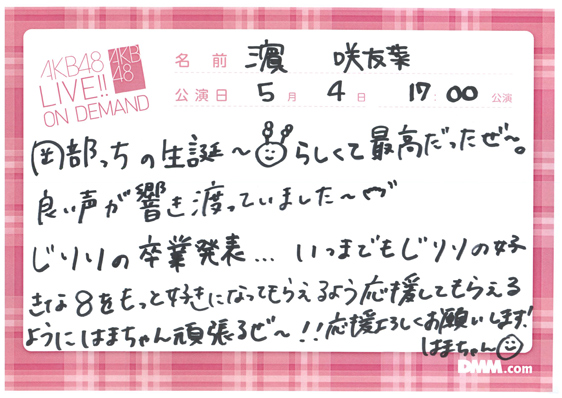 AKB48
LIVE!!
ON DEMAND
AKB
48
名前 濵 咲友菜
公演日 5月 4日 17:00 公演
岡部っちの生誕～らしくて最高だったぜ～。
良い声が響き渡っていました～
じりりの卒業発表... いつまでもじりりの好
きな8をもっと好きになってもらえるよう応援してもらえる
ようにはまちゃん頑張るぜ～!!応援よろしくお願いします!
はまちゃん
DMM.com